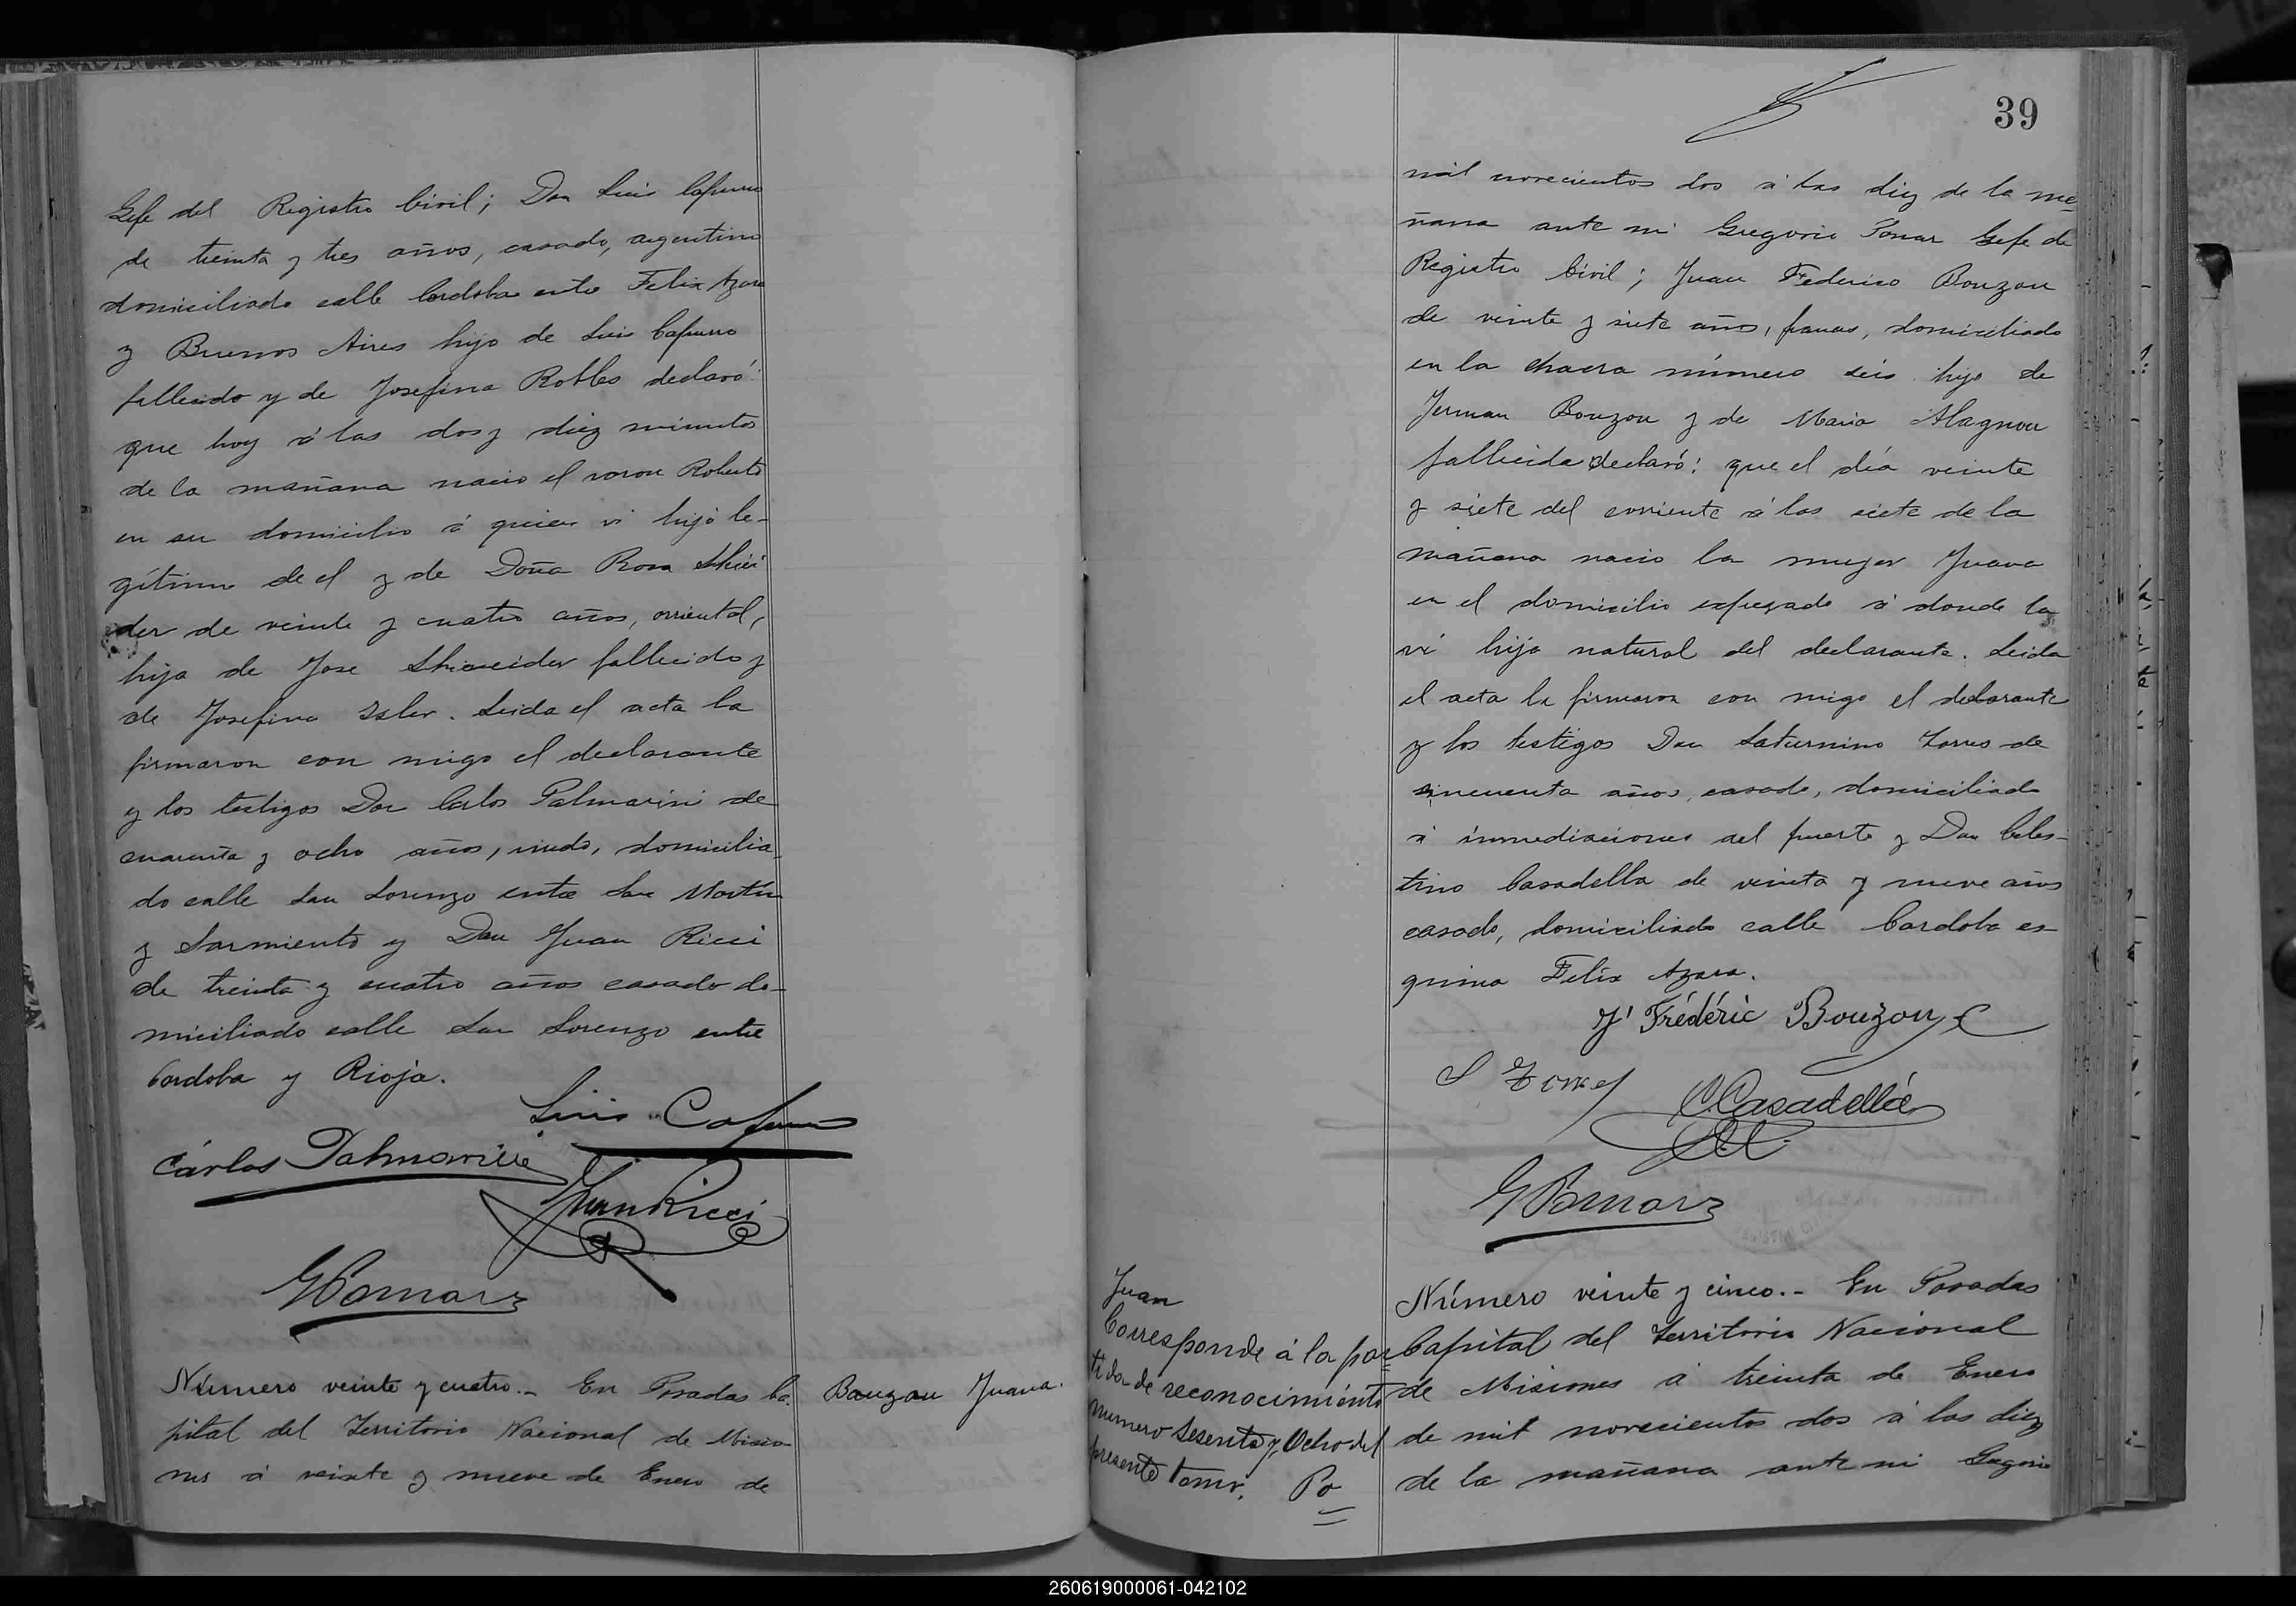 Gefe del Registro Civil; Don Luis Capurro
de treinta y tres años, casado, argentino
domiciliado calle Cordoba entre Felix Azara
y Buenos Aires hijo de Luis Capurro
fallecido y de Josefina Robles declaró:
que hoy á las dos y diez minutos
de la mañana nacio el varon Roberto
en su domicilio á quien vi hijo le-
gítimo de el y de Doña Rosa Shiei
der de veinte y cuatro años, oriental,
hija de Jose Shieneider fallecido y
de Josefina Isler. Leida el acta la
firmaron con migo el declarante
y los testigos Don Carlos Palmarini de
cuarenta y ocho años, viudo, domicilia-
do calle San Lorenzo entre San Martín
y Sarmiento y Don Juan Ricci
de treinta y cuatro años casado do-
miciliado calle San Lorenzo entre
Cordoba y Rioja.
Luis Capurro
Cárlos Palmarini
Juan Ricci
Número veinte y cuatro.- En Posadas Ca-
pital del Territorio Nacional de Misio-
nes á veinte y nueve de Enero de
Bouzon Juana.
39
mil novecientos dos á las diez de la ma-
ñana ante mi Gregorio Pomar Gefe de
Registro Civil; Juan Federico Bouzon
de veinte y siete años, frances, domiciliado
en la chacra número seis hijo de
Jerman Bouzon y de Maria Alagnou
fallecida declaró: que el día veinte
y siete del corriente á las siete de la
mañana nacio la mujer Juana
en el domicilio espresado á donde la
vi hija natural del declarante. Leida
el acta la firmaron con migo el declarante
y los testigos Don Saturnino Torres de
cincuenta años, casado, domiciliado
á inmediaciones del puerto y Don Celes-
tino Casadella de veinta y nueve años
casado, domiciliado calle Cordoba es-
quina Felix Azara.
J' Frédéric Bouzon
S Torres
C. Casadellá
G Pomar
Juan
Corresponde á la par
tida de reconocimiento
numero sesenta y Ocho del
presente tomo. Po
Número veinte y cinco.- En Posadas
Capital del Territorio Nacional
de Misiones á treinta de Enero
de mil novecientos dos á las diez
de la mañana ante mi Gregorio
260619000061-042102